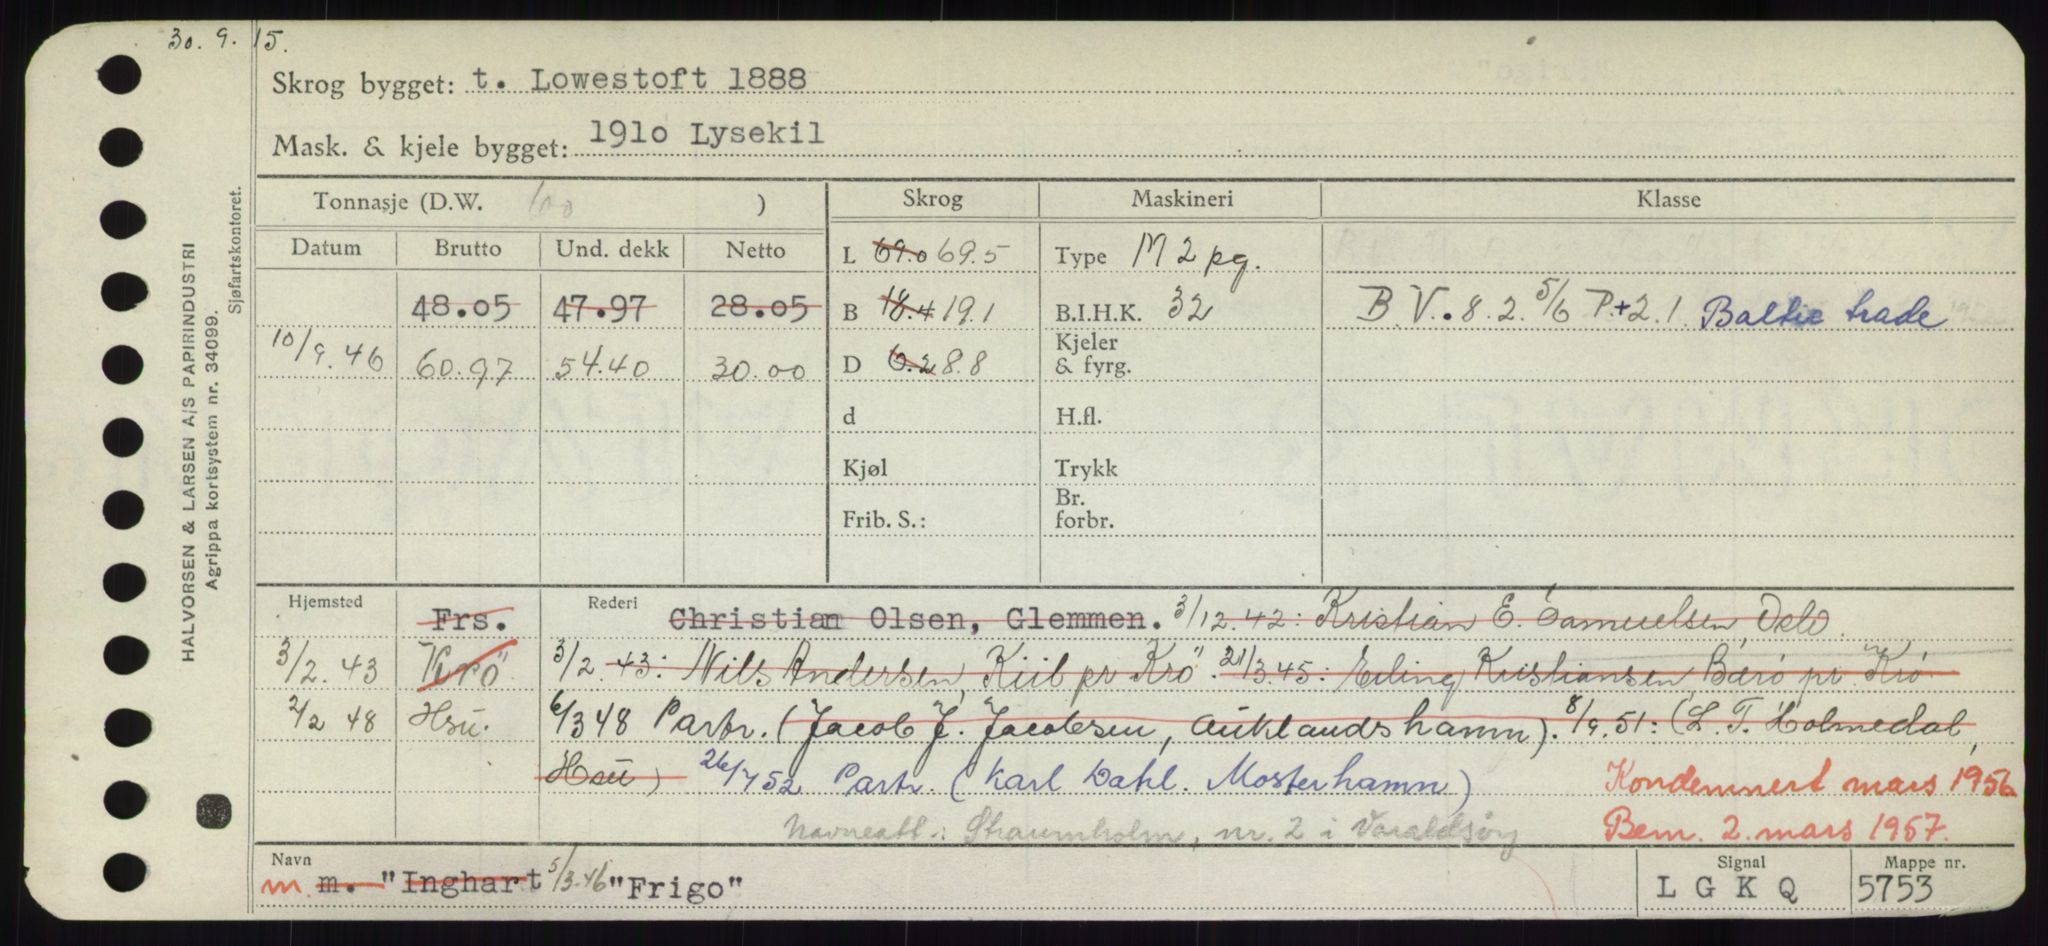 30. 9. 15.
Skrog bygget: t. Lowestoft 1888
Mask. & kjele bygget: 191o Lysekil
HALVORSEN & LARSEN A/S PAPIRINDUSTRI
Agrippa kortsystem nr. 34099.
Sjøfartskontoret.
Tonnasje (D.W. 100 ) Skrog Maskineri Klasse
Datum Brutto Und. dekk Netto L 69.0 69.5 Type M 2 pg.
48.05 47.97 28.05 B 18.4 19.1 B.I.H.K. 32 B.V. 8.2. 5/6 P.+2.1. Baltic trade
10/9.46 60.97 54.40 30.00 D 6.2 8.8 Kjeler & fyrg.
d H.fl.
Kjøl Trykk
Frib. S.: Br. forbr.
Hjemsted Frs. Rederi Christian Olsen, Glemmen. 3/12.42: Kristian E. Samuelsen, Oslo.
3/2.43 "Krø" 3/2.43: Nils Andersen, Kiil pr Krø". 21/3.45: Erling Kristiansen Bærø pr. Krø
2/2 48 Hsu. 6/3 48 Partr. (Jacob J. Jacobsen, Auklandshamn). 8/9.51: (L. T. Holmedal,
Hsu) 26/7 52 Partr. (Karl Dahl. Mosterhamn) Kondemnert mars 1956
Navneatt.: Straumholm, nr. 2 i Varaldsøy Bem. 2. mars 1957.
Navn m m. "Inghart 5/3.46 "Frigo" Signal L G K Q Mappe nr. 5753